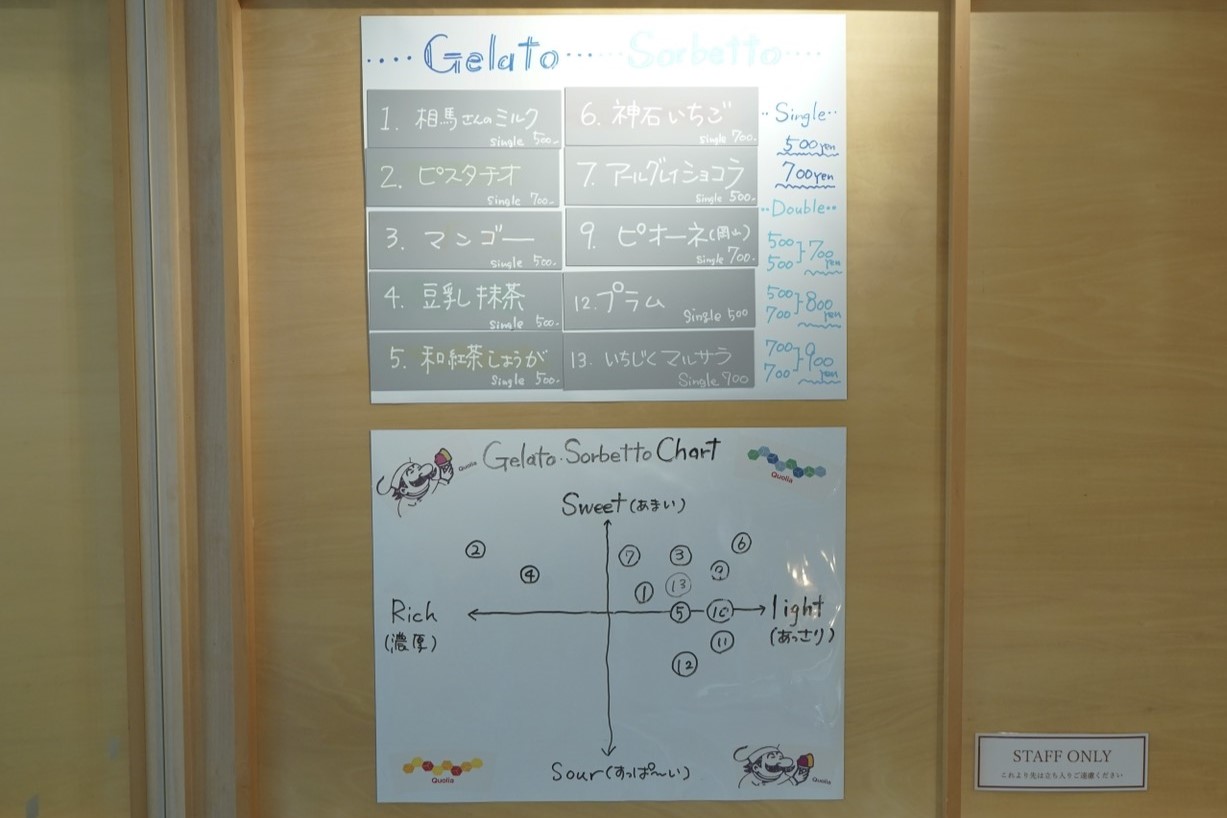 Gelato Sorbetto
1. 相馬さんのミルク
Single 500.-
2. ピスタチオ
Single 700.-
3. マンゴー
Single 500.-
4. 豆乳抹茶
Single 500.-
5. 和紅茶しょうが
Single 500.-
6. 神石いちご
Single 700.-
7. アールグレイショコラ
Single 500.-
9. ピオーネ(岡山)
Single 700.-
12. プラム
Single 500
13. いちじくマルサラ
Single
Single
500yen
700yen
Double
500
500 } 700 yen
500
700 } 800 yen
700
700 } 900 yen
Gelato・Sorbetto Chart
Quolia
Quolia
Sweet(あまい)
② ⑦ ③ ⑥
④ ⑬
①
Rich ⑤ light
(濃厚) (あっさり)
⑪
⑫
Sour(すっぱ〜い)
Quolia
Quolia
STAFF ONLY
これより先は立ち入りご遠慮ください